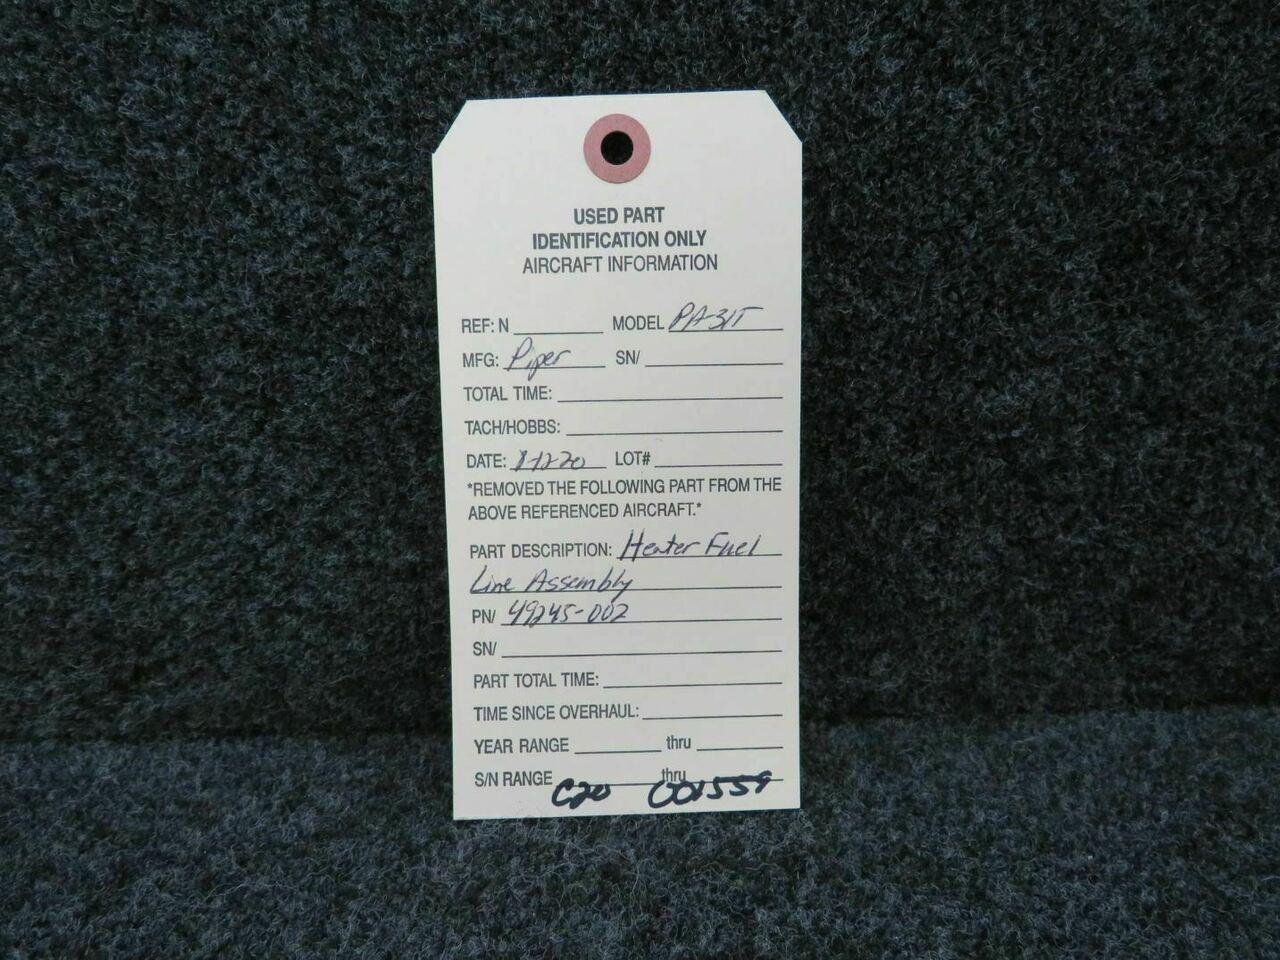 USED PART
IDENTIFICATION ONLY
AIRCRAFT INFORMATION
REF: N MODEL PA-31T
MFG: Piper SN/
TOTAL TIME:
TACH/HOBBS:
DATE: 8-12-20 LOT#
*REMOVED THE FOLLOWING PART FROM THE
ABOVE REFERENCED AIRCRAFT.*
PART DESCRIPTION: Heater Fuel
Line Assembly
PN/ 49245-002
SN/
PART TOTAL TIME:
TIME SINCE OVERHAUL:
YEAR RANGE thru
S/N RANGE thru
C20 001559